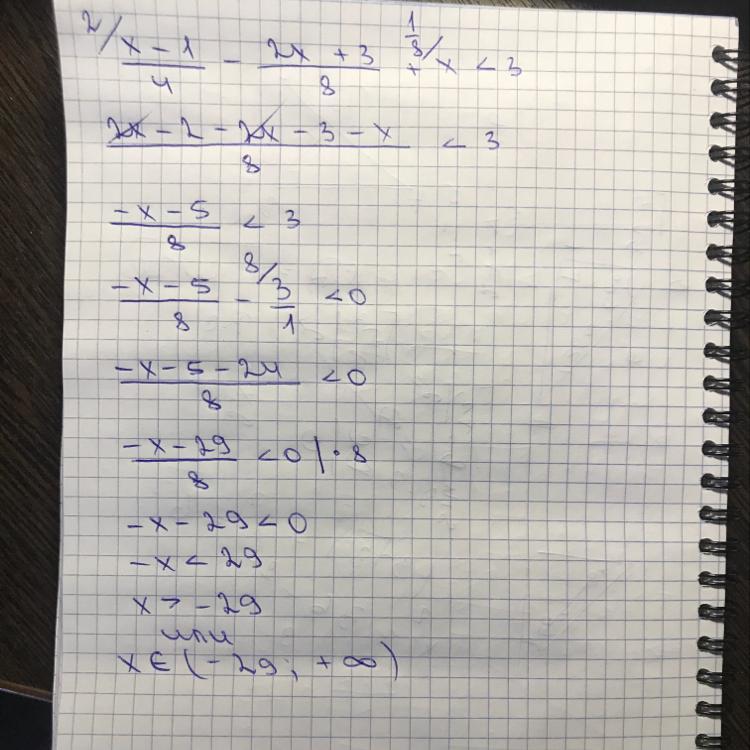 2/ (x - 1)/4 - (2x + 3)/8 + 1/8/ x < 3
(2x - 2 - 2x - 3 - x)/8 < 3
(-x - 5)/8 < 3
(-x - 5)/8 - 8/ 3/1 < 0
(-x - 5 - 24)/8 < 0
(-x - 29)/8 < 0 | · 8
-x - 29 < 0
-x < 29
x > -29
или
x ∈ (-29; +∞)